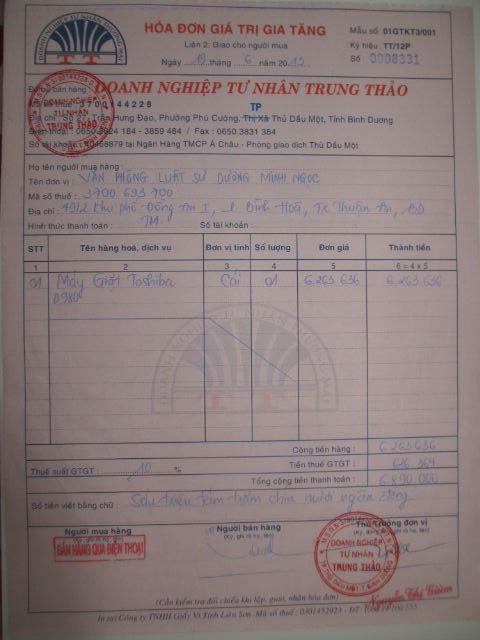 HÓA ĐƠN GIÁ TRỊ GIA TĂNG
Liên 2: Giao cho người mua
Ngày 19 tháng 6 năm 2013
Mẫu số 01GTKT3/001
Ký hiệu: TT/12P
Số 0008331
DOANH NGHIỆP TƯ NHÂN THƯƠNG MẠI
TT
Đơn vị bán hàng
DOANH NGHIỆP TƯ NHÂN TRUNG THẢO
Mã số thuế : 3700144228
TP
Địa chỉ: Số 27, Trần Hưng Đạo, Phường Phú Cường, Thị Xã Thủ Dầu Một, Tỉnh Bình Dương
Điện thoại: 0650.3824 184 - 3859 484 / Fax : 0650.3831 384
Số tài khoản: 30468879 tại Ngân Hàng TMCP Á Châu - Phòng giao dịch Thủ Dầu Một
DOANH NGHIỆP
TƯ NHÂN
TRUNG THẢO
Họ tên người mua hàng :
Tên đơn vị : VĂN PHÒNG LUẬT SƯ DƯƠNG MINH NGỌC
Mã số thuế : 3700.693.700
Địa chỉ : 49/2 Khu phố Đông An I, P Bình Hoà, Tx Thuận An, BD
Hình thức thanh toán : TM Số tài khoản:
STT Tên hàng hoá, dịch vụ Đơn vị tính Số lượng Đơn giá Thành tiền
1 2 3 4 5 6 = 4 x 5
01 Máy Giặt Toshiba Cái 01 6.263.636 6.263.636
D980
DOANH NGHIỆP TƯ NHÂN THƯƠNG MẠI
TT
Cộng tiền hàng : 6.263.636
Thuế suất GTGT : 10 % Tiền thuế GTGT : 626.364
Tổng cộng tiền thanh toán : 6.890.000
Số tiền viết bằng chữ : Sáu triệu tám trăm chín mươi ngàn đồng
Người mua hàng Người bán hàng Thủ trưởng đơn vị
(Ký, ghi rõ họ, tên) (Ký, ghi rõ họ, tên)
BÁN HÀNG QUA ĐIỆN THOẠI
DOANH NGHIỆP
TƯ NHÂN
TRUNG THẢO
(Cần kiểm tra đối chiếu khi lập, giao, nhận hóa đơn)
In tại Công ty TNHH Giấy Vi Tính Liên Sơn. Mã số thuế : 0301452923 - ĐT: